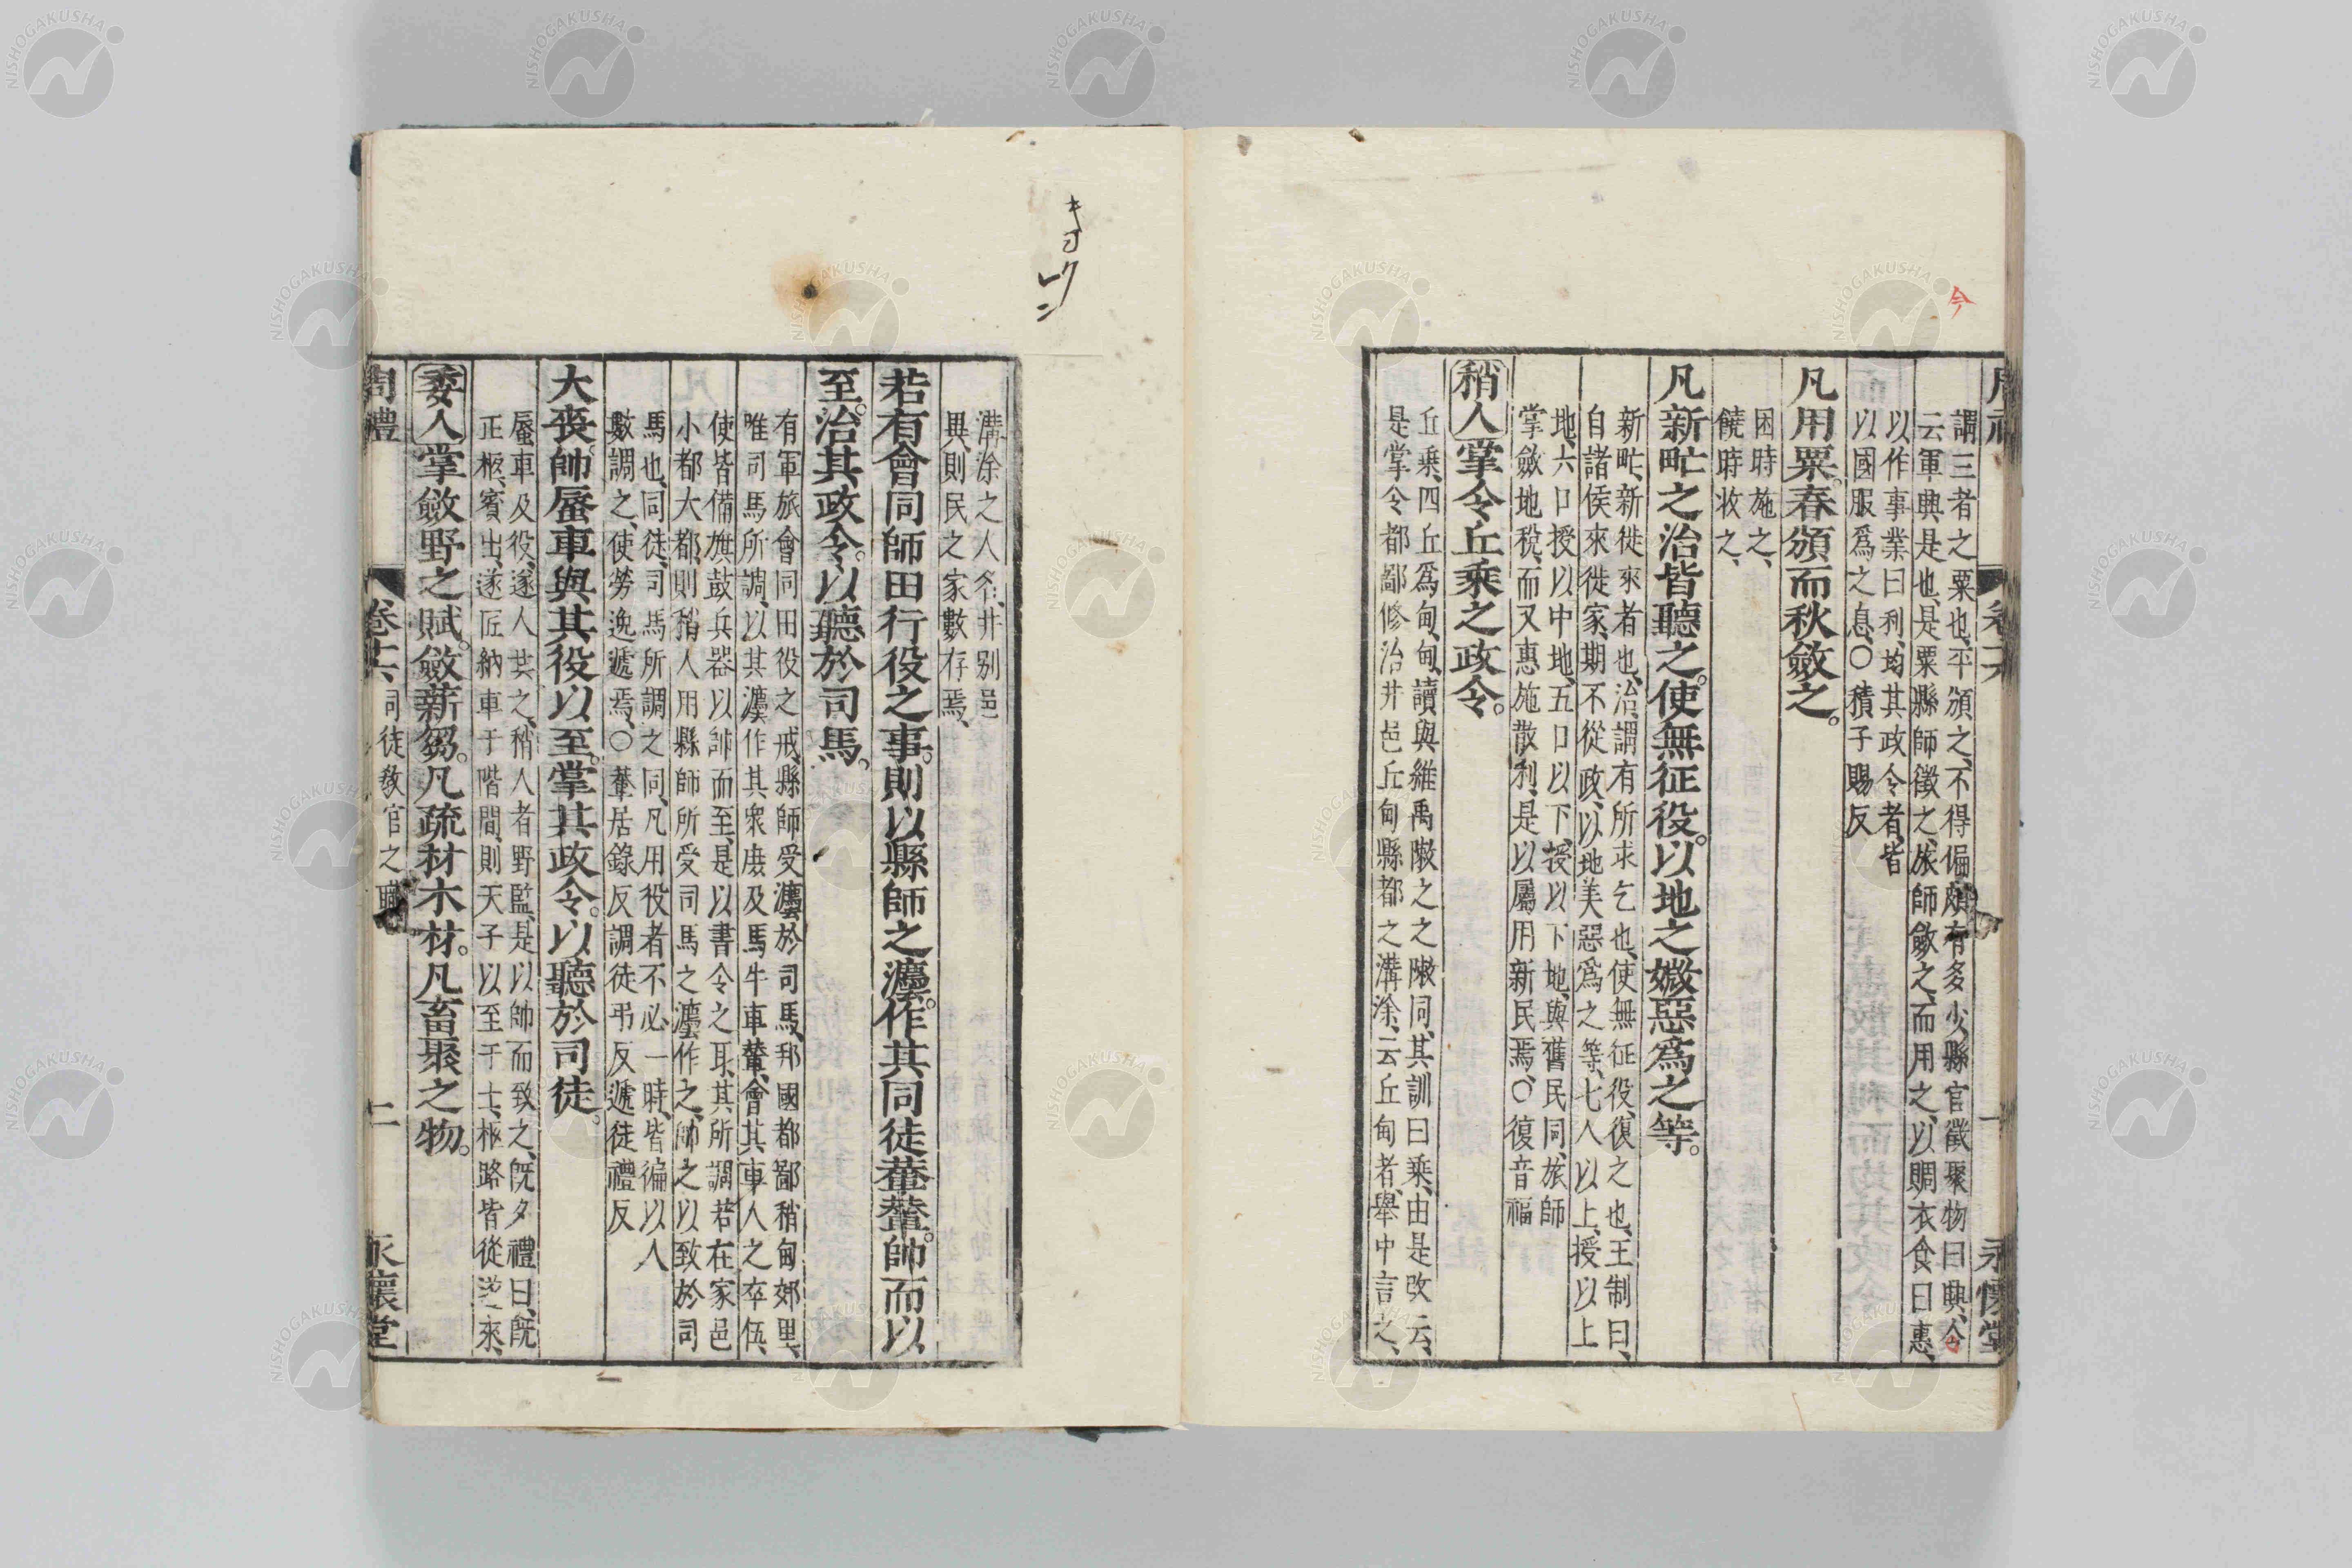 周禮 卷十六 一 永懷堂
謂三者之粟也、平頒之、不得偏頗有多少、縣官徵聚物曰興、今
云軍興是也、是粟縣師徵之、旅師斂之、而用之、以賙衣食曰惠、
以作事業曰利、均其政令者、皆
以國服爲之息、○積子賜反
凡用粟。春頒而秋斂之。
困時施之、
饒時收之、
凡新甿之治皆聽之。使無征役。以地之媺惡爲之等。
新甿、新徙來者也、治、謂有所求乞也、使無征役、復之也、王制曰、
自諸侯來徙家、期不從政、以地美惡爲之等、七人以上、授以上
地、六口授以中地、五口以下、授以下地、與舊民同、旅師
掌斂地稅、而又惠施散利、是以屬用新民焉、○復音福
稍人掌令丘乘之政令。
丘乘、四丘爲甸、甸、讀與維禹敶之之敶同、其訓曰乘、由是改云、
是掌令都鄙修治井邑丘甸縣都之溝涂、云丘甸者、舉中言之、
溝涂之人名、井別邑
異、則民之家數存焉、
若有會同師田行役之事。則以縣師之灋。作其同徒輂輦。帥而以
至。治其政令。以聽於司馬。
有軍旅會同田役之戒、縣師受灋於司馬、邦國都鄙稍甸郊里、
唯司馬所調、以其灋作其衆庶及馬牛車輦、會其車人之卒伍、
使皆備旗鼓兵器以帥而至、是以書令之耳、其所調若在家邑
小都大都、則稍人用縣師所受司馬之灋作之、帥之以致於司
馬也、同徒、司馬所調之同、凡用役者不必一時、皆徧以人
數調之、使勞逸遞焉、○輂居錄反調徒弔反遞徒禮反
大喪。帥蜃車與其役以至。掌其政令。以聽於司徒。
蜃車及役、遂人共之、稍人者野監、是以帥而致之、旣夕禮曰、旣
正柩、賓出、遂匠納車于階間、則天子以至于士、柩路皆從遂來、
委人掌斂野之賦。斂薪芻。凡疏材木材。凡畜聚之物。
周禮 卷十六 司徒敎官之職 二 永懷堂
今